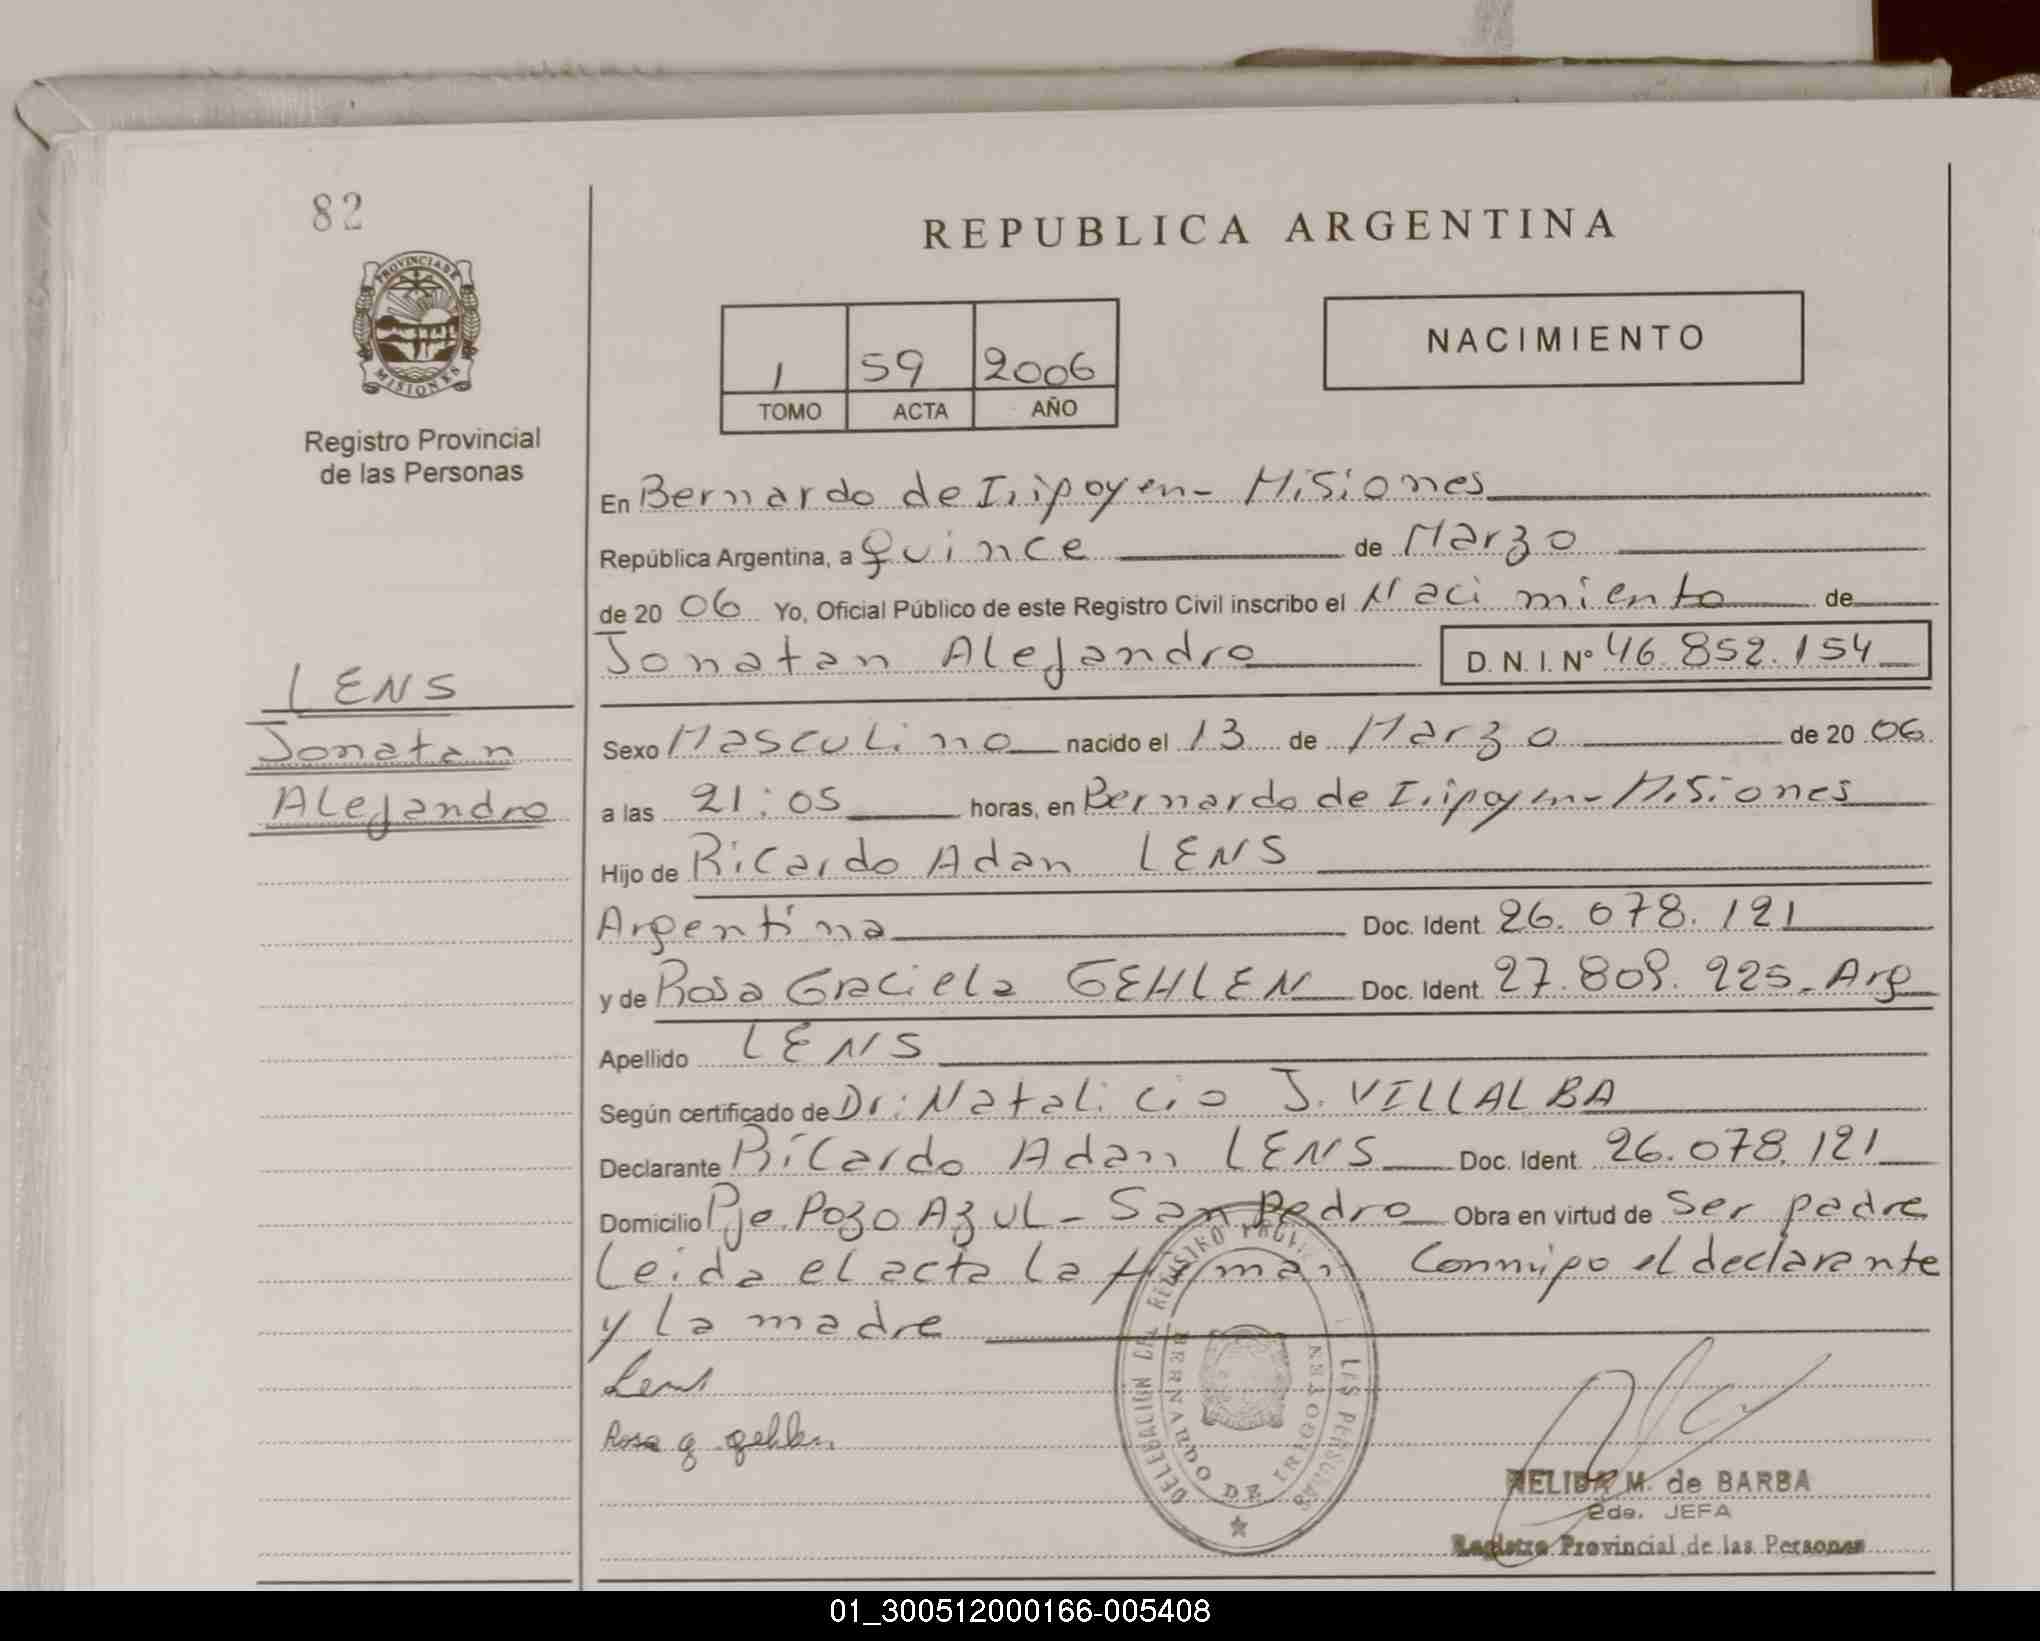 82
REPUBLICA ARGENTINA
PROVINCIA DE
MISIONES
Registro Provincial
de las Personas
1 59 2006
TOMO ACTA AÑO
NACIMIENTO
En Bernardo de Irigoyen - Misiones
República Argentina, a Quince de Marzo
de 20 06 Yo, Oficial Público de este Registro Civil inscribo el Nacimiento de
Jonatan Alejandro D. N. I. Nº 46.852.154
LENS
Jonatan
Alejandro
Sexo Masculino nacido el 13 de Marzo de 20 06
a las 21:05 horas, en Bernardo de Irigoyen - Misiones
Hijo de Ricardo Adan LENS
Argentina Doc. Ident. 26.078.121
y de Rosa Graciela GEHLEN Doc. Ident. 27.809.225 - Arg
Apellido LENS
Según certificado de Dr: Natalicio J. VILLALBA
Declarante Ricardo Adan LENS Doc. Ident. 26.078.121
Domicilio Pje. Pozo Azul - San Pedro Obra en virtud de Ser padre
Leida el acta la firman Conmigo el declarante
y la madre
Lens
Rosa g gehlen
DELEGACION DEL REGISTRO PROVI LAS PERSONAS
BERNARDO DE IRIGOYEN
NELIDA M. de BARBA
2da. JEFA
Registro Provincial de las Personas
01_300512000166-005408